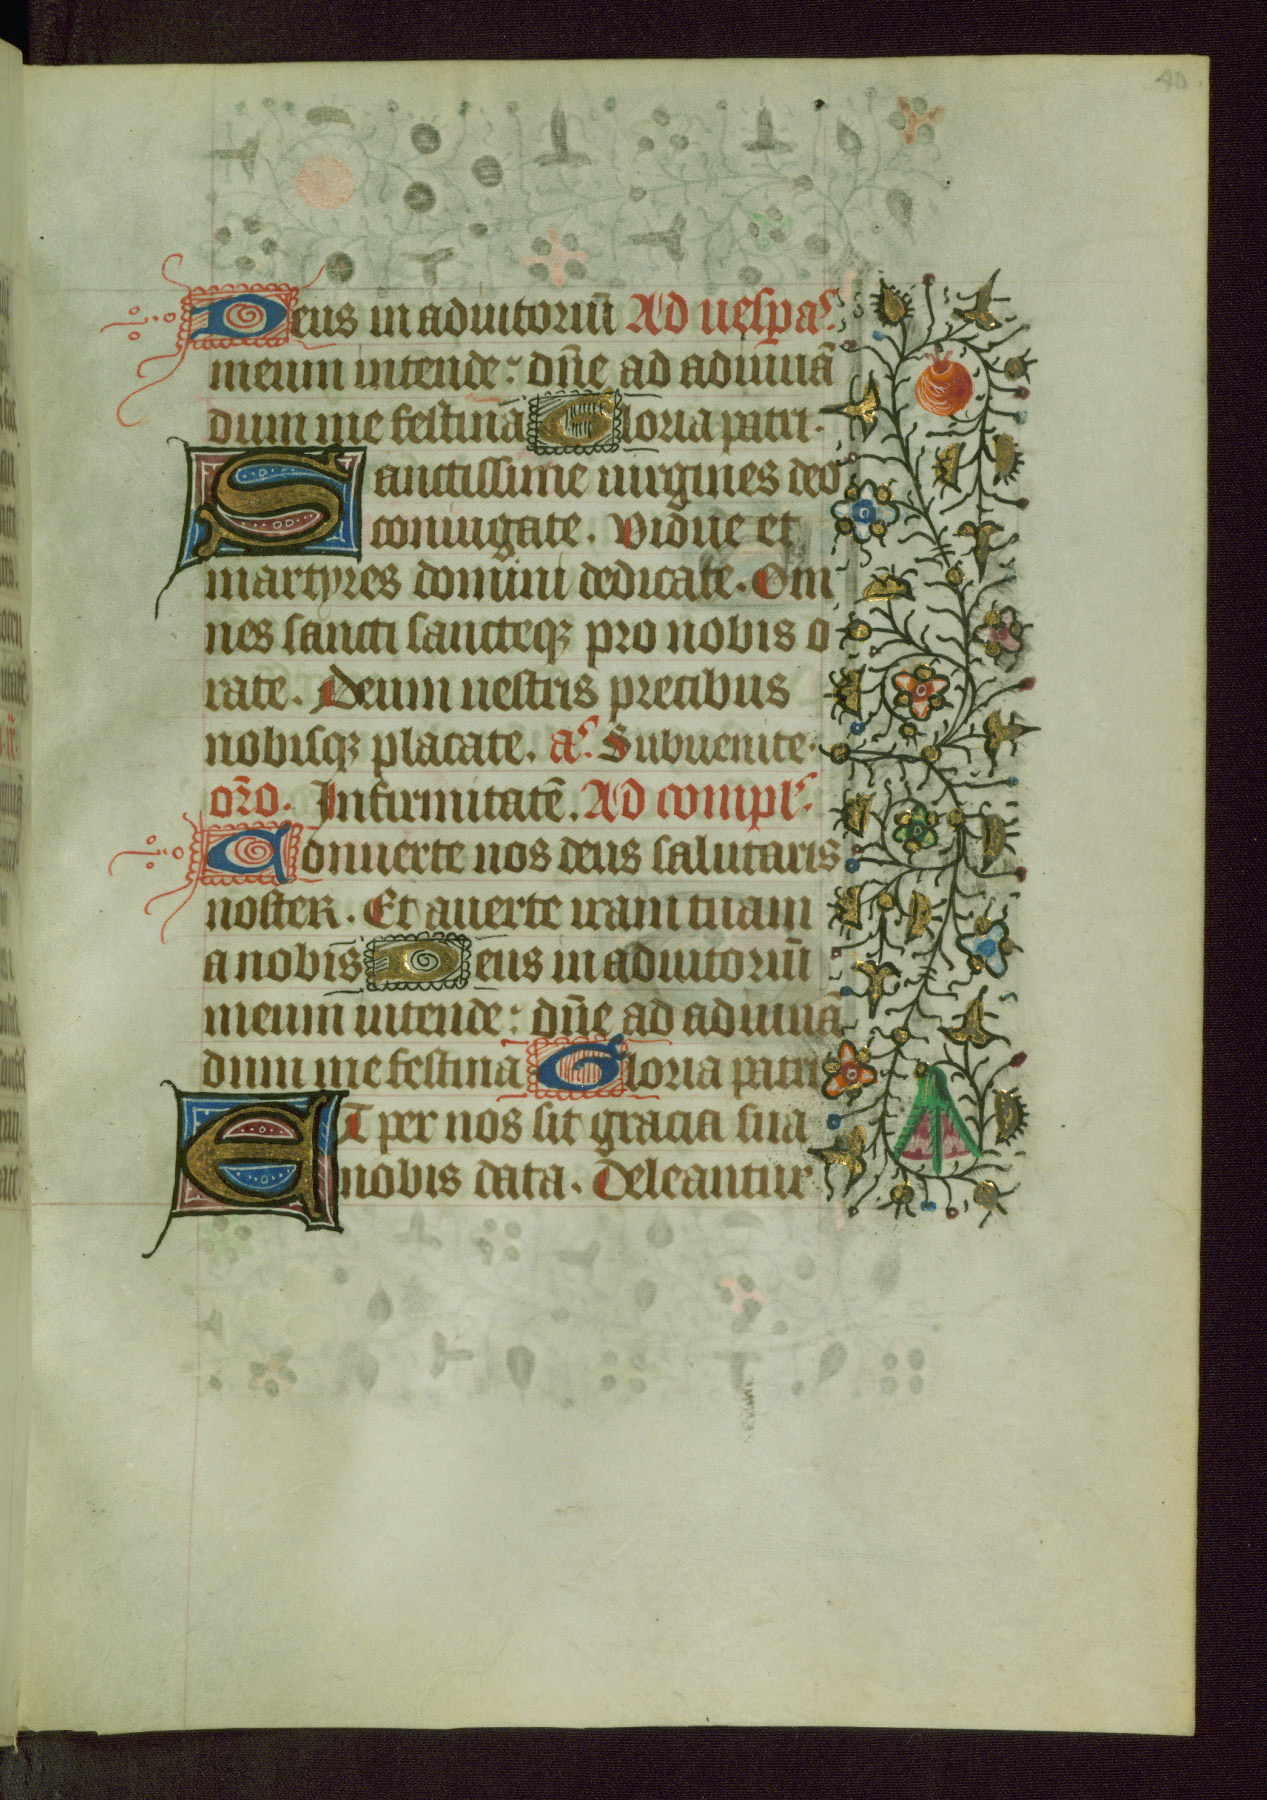 40
Deus in adiutoriū Ad uespaꝰ.
meum intende: dn̄e ad adiuuā
dum me festina Gloria patri.
Sanctissime uirgines deo
coniugate. Vidue et
martyres domini dedicate. Om
nes sancti sancteqꝫ pro nobis o
rate. Deum uestris precibus
nobisqꝫ placate. aꝰ. Subuenite.
or̄o. Infirmitatē. Ad complꝰ.
Conuerte nos deus salutaris
noster. Et auerte iram tuam
a nobis Deus in adiutoriū
meum intende: dn̄e ad adiuuā
dum me festina Gloria patri
Et per nos sit gracia sua
nobis data. Deleantur